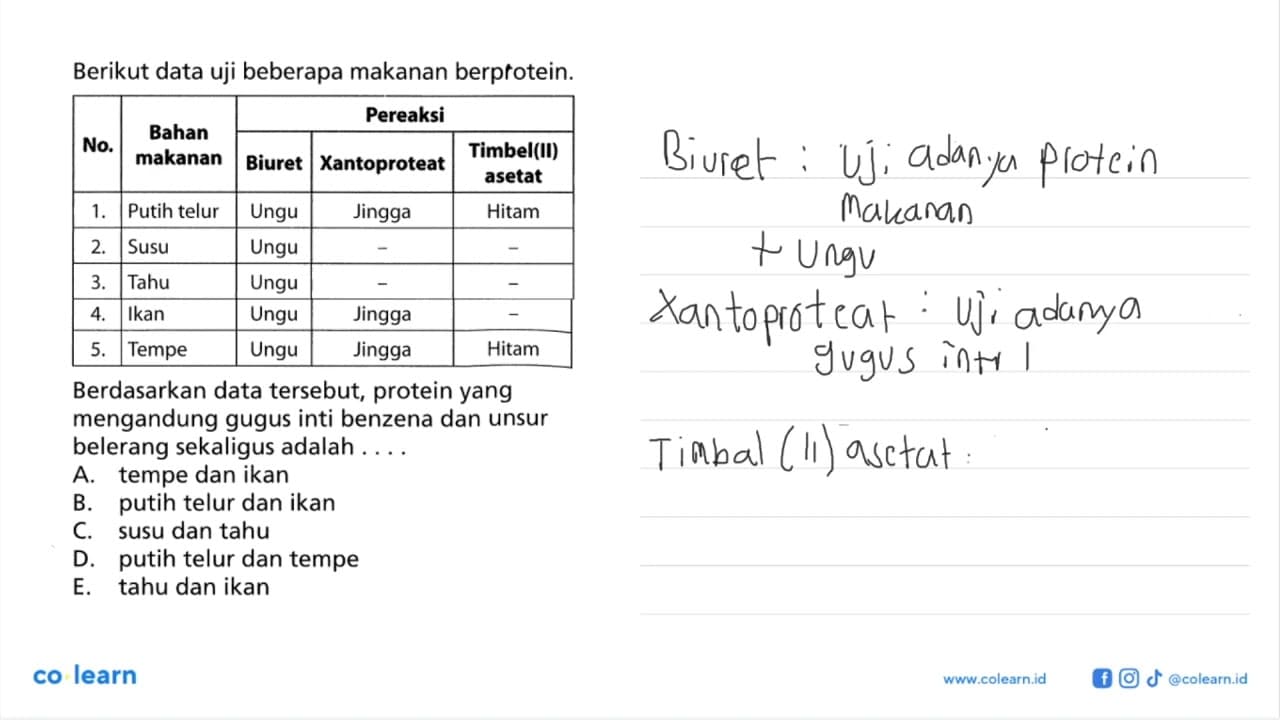 Berikut data uji beberapa makanan berprotein.
No. Bahan makanan Pereaksi
Biuret Xantoproteat Timbel(II) asetat
1. Putih telur Ungu Jingga Hitam
2. Susu Ungu – –
3. Tahu Ungu – –
4. Ikan Ungu Jingga –
5. Tempe Ungu Jingga Hitam
Berdasarkan data tersebut, protein yang
mengandung gugus inti benzena dan unsur
belerang sekaligus adalah . . . .
A. tempe dan ikan
B. putih telur dan ikan
C. susu dan tahu
D. putih telur dan tempe
E. tahu dan ikan
Biuret : Uji adanya protein
Makanan
+ Ungu
Xantoproteat : Uji adanya
gugus inti
Timbal (II) asetat :
co learn
www.colearn.id
@colearn.id